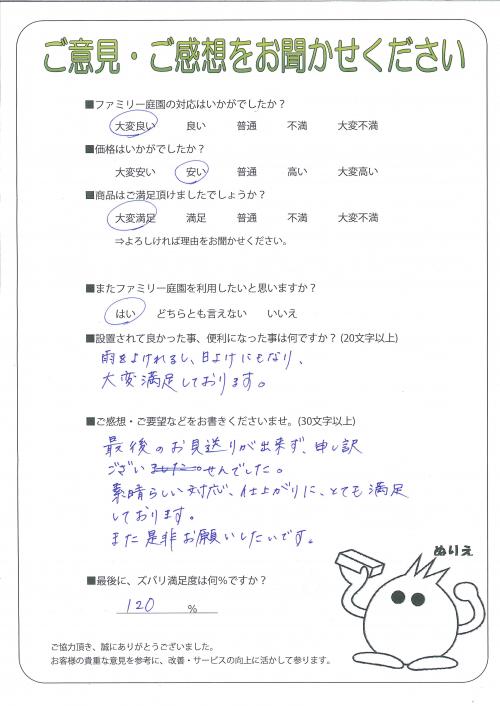 ご意見・ご感想をお聞かせください
■ファミリー庭園の対応はいかがでしたか？
大変良い 良い 普通 不満 大変不満
■価格はいかがでしたか？
大変安い 安い 普通 高い 大変高い
■商品はご満足頂けましたでしょうか？
大変満足 満足 普通 不満 大変不満
⇒よろしければ理由をお聞かせください。
■またファミリー庭園を利用したいと思いますか？
はい どちらとも言えない いいえ
■設置されて良かった事、便利になった事は何ですか？(20文字以上)
雨をよけれるし、日よけにもなり、
大変満足しております。
■ご感想・ご要望などをお書きくださいませ。(30文字以上)
最後のお見送りが出来ず、申し訳
ございませんでした。
素晴らしい対応、仕上がりに、とても満足
しております。
また是非お願いしたいです。
ぬりえ
■最後に、ズバリ満足度は何％ですか？
120 %
ご協力頂き、誠にありがとうございました。
お客様の貴重な意見を参考に、改善・サービスの向上に活かして参ります。